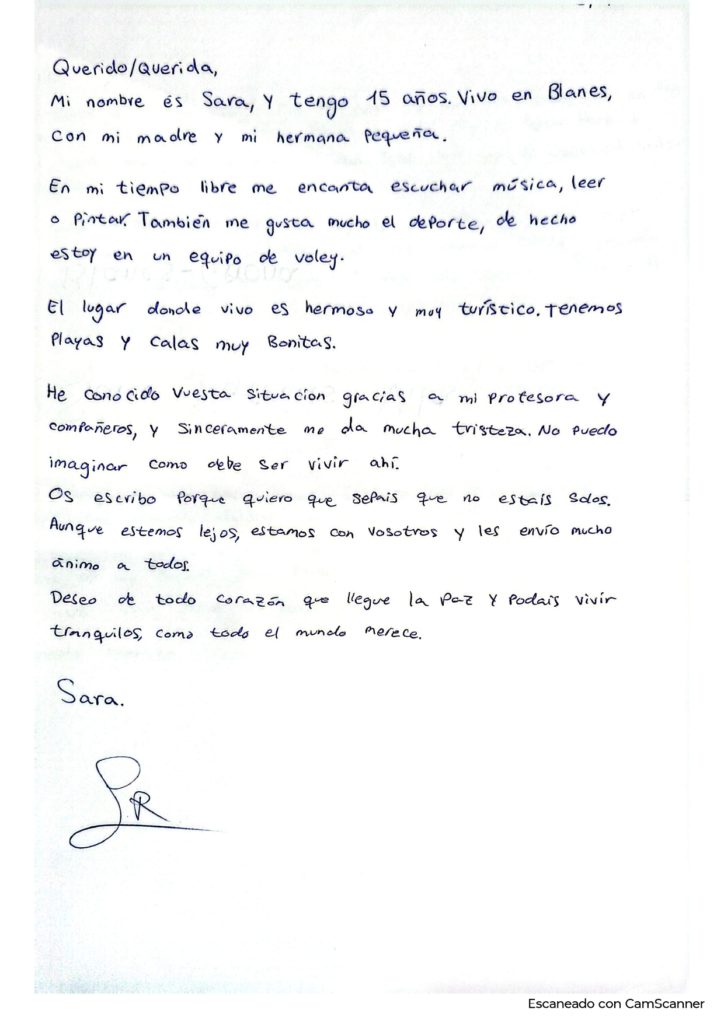 Querido/Querida,
Mi nombre és Sara, y tengo 15 años. Vivo en Blanes,
con mi madre y mi hermana pequeña.
En mi tiempo libre me encanta escuchar música, leer
o pintar. También me gusta mucho el deporte, de hecho
estoy en un equipo de voley.
El lugar donde vivo es hermoso y muy turístico. Tenemos
playas y calas muy Bonitas.
He conocido vuesta situacion gracias a mi profesora y
compañeros, y sinceramente me da mucha tristeza. No puedo
imaginar como debe ser vivir ahí.
Os escribo porque quiero que sepais que no estaís solos.
Aunque estemos lejos, estamos con vosotros y les envío mucho
ánimo a todos.
Deseo de todo corazón que llegue la paz y podais vivir
tranquilos, como todo el mundo merece.
Sara.
SR
Escaneado con CamScanner